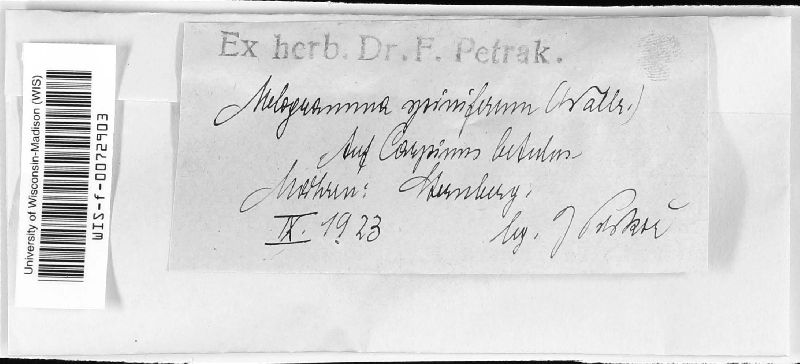 University of Wisconsin-Madison (WIS)
WIS-f-0072903
Ex herb. Dr. F. Petrak.
Melogramma spiniferum (Wallr.)
Auf Carpinus betulus
Mähren: Sternberg.
IX. 1923
lg. J Piskoř